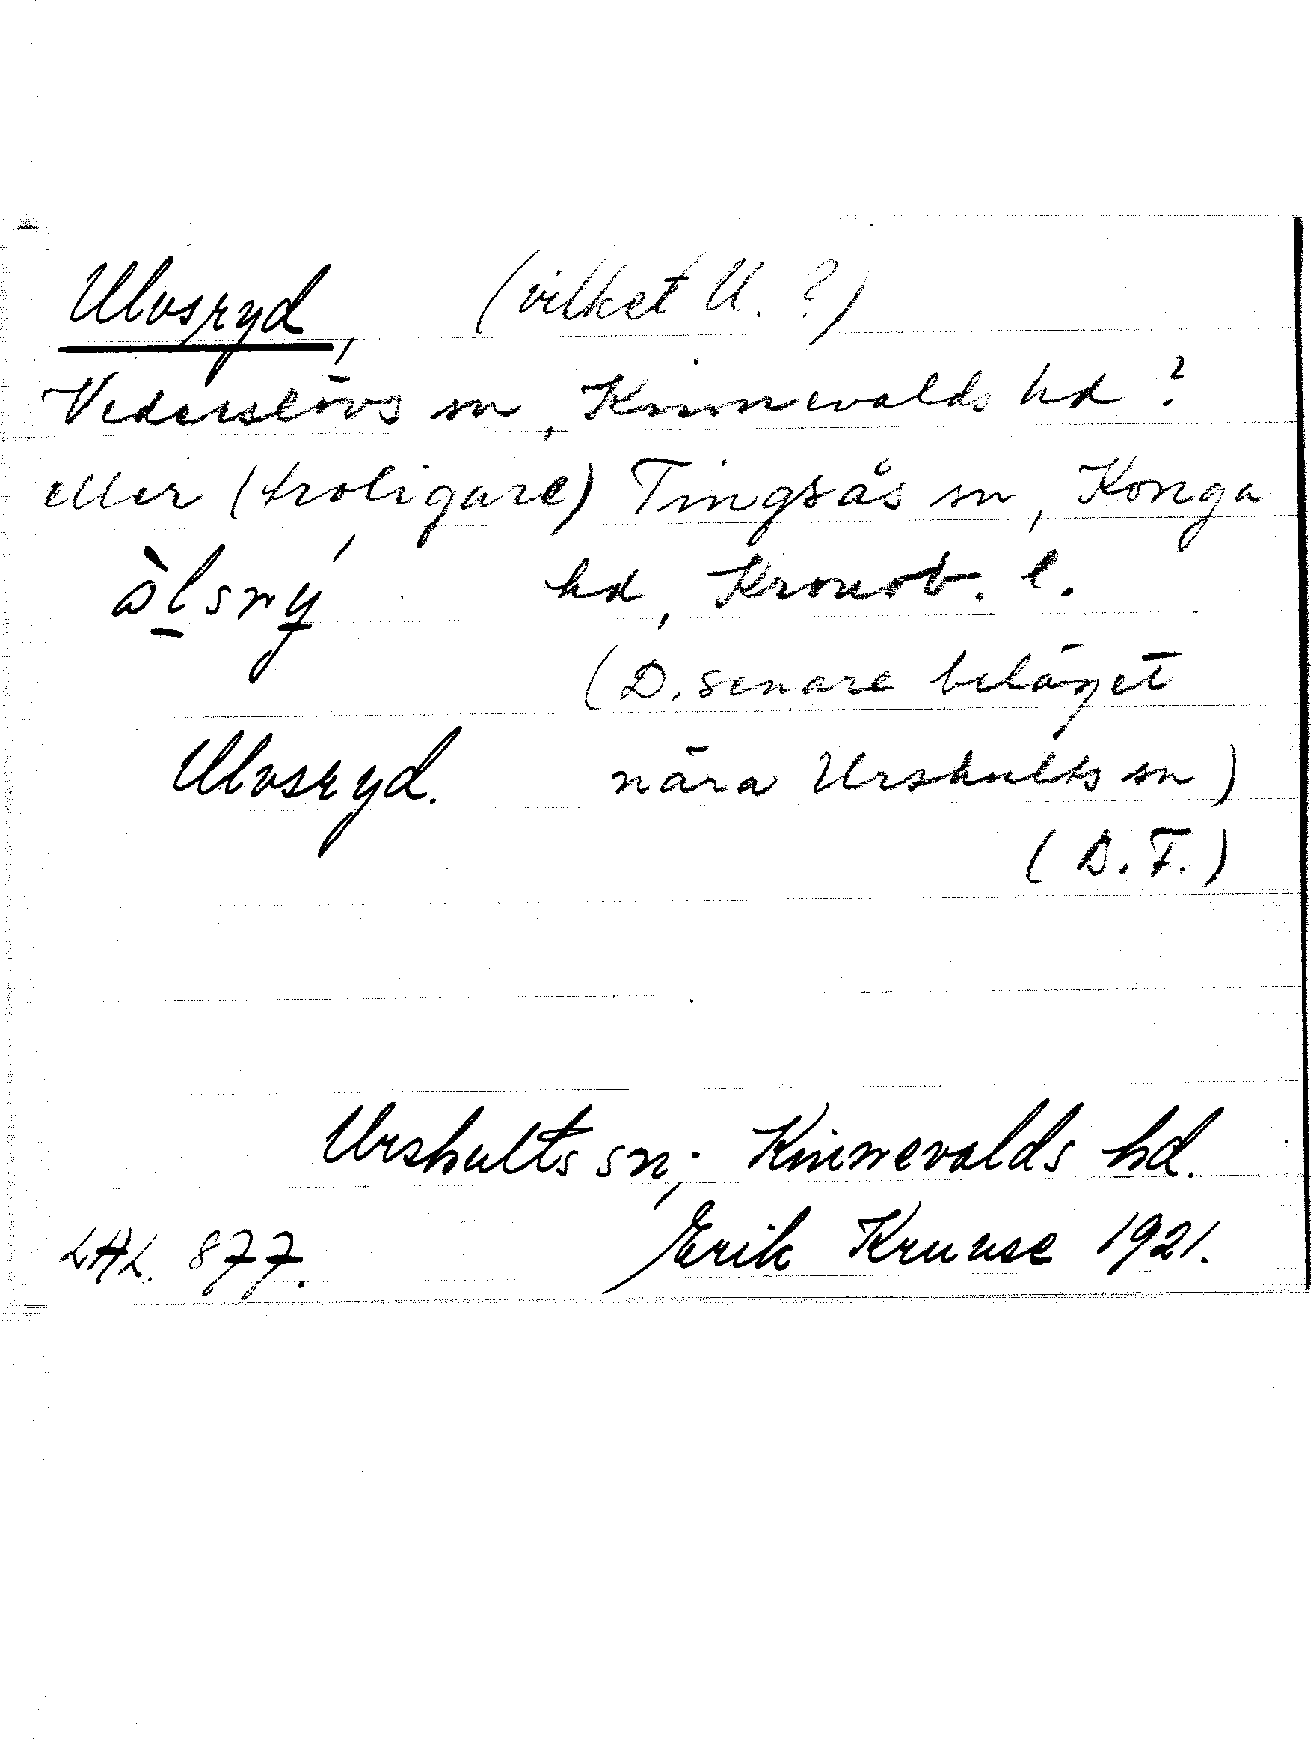 Ulvsryd, (vilket U.?)
Vederslövs sn, Kinnevalds hd?
eller (troligare) Tingsås sn, Konga
hd, Kronob. l.
(D. senare beläget
Ulvsryd. nära Urshults sn)
(D.F.)
Urshults sn; Kinnevalds hd.
LAL. 877. Erik Kruuse 1921.